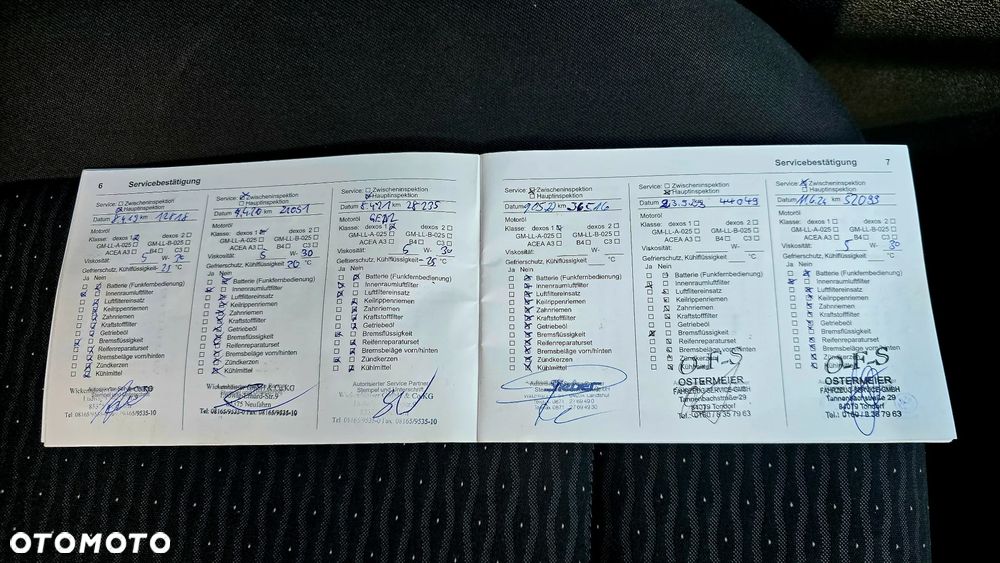 6 Servicebestätigung
Service: Zwischeninspektion
Hauptinspektion
Datum km 12818
Motoröl
Klasse: dexos 1 dexos 2
GM-LL-A-025 GM-LL-B-025
ACEA A3 B4 C3
Viskosität: 5 W-
Gefrierschutz, Kühlflüssigkeit °C
Ja Nein
Batterie (Funkfernbedienung)
Innenraumluftfilter
Luftfiltereinsatz
Keilrippenriemen
Zahnriemen
Kraftstofffilter
Getriebeöl
Bremsflüssigkeit
Reifenreparaturset
Bremsbeläge vorn/hinten
Zündkerzen
Kühlmittel
Tel: 08165/9535-10
Service: Zwischeninspektion
Hauptinspektion
Datum km 21051
Motoröl
Klasse: dexos 1 dexos 2
GM-LL-A-025 GM-LL-B-025
ACEA A3 B4 C3
Viskosität: 5 W- 30
Gefrierschutz, Kühlflüssigkeit 26 °C
Ja Nein
Batterie (Funkfernbedienung)
Innenraumluftfilter
Luftfiltereinsatz
Keilrippenriemen
Zahnriemen
Kraftstofffilter
Getriebeöl
Bremsflüssigkeit
Reifenreparaturset
Bremsbeläge vorn/hinten
Zündkerzen
Kühlmittel
Neufahrn
Tel: 08165/9535-0 Fax: 08165/9535-10
Service: Zwischeninspektion
Hauptinspektion
Datum 8.4.21 km 28235
Motoröl
Klasse: dexos 1 dexos 2
GM-LL-A-025 GM-LL-B-025
ACEA A3 B4 C3
Viskosität: 5 W- 30
Gefrierschutz, Kühlflüssigkeit 25 °C
Ja Nein
Batterie (Funkfernbedienung)
Innenraumluftfilter
Luftfiltereinsatz
Keilrippenriemen
Zahnriemen
Kraftstofffilter
Getriebeöl
Bremsflüssigkeit
Reifenreparaturset
Bremsbeläge vorn/hinten
Zündkerzen
Kühlmittel
Autorisierter Service Partner
Stempel und Unterschrift
Tel: 08165/9535-0 Fax: 08165/9535-10
Servicebestätigung 7
Service: Zwischeninspektion
Hauptinspektion
Datum km 36516
Motoröl
Klasse: dexos 1 dexos 2
GM-LL-A-025 GM-LL-B-025
ACEA A3 B4 C3
Viskosität: W-
Gefrierschutz, Kühlflüssigkeit °C
Ja Nein
Batterie (Funkfernbedienung)
Innenraumluftfilter
Luftfiltereinsatz
Keilrippenriemen
Zahnriemen
Kraftstofffilter
Getriebeöl
Bremsflüssigkeit
Reifenreparaturset
Bremsbeläge vorn/hinten
Zündkerzen
Kühlmittel
Service: Zwischeninspektion
Hauptinspektion
Datum km 44049
Motoröl
Klasse: dexos 1 dexos 2
GM-LL-A-025 GM-LL-B-025
ACEA A3 B4 C3
Viskosität: W-
Gefrierschutz, Kühlflüssigkeit °C
Ja Nein
Batterie (Funkfernbedienung)
Innenraumluftfilter
Luftfiltereinsatz
Keilrippenriemen
Zahnriemen
Kraftstofffilter
Getriebeöl
Bremsflüssigkeit
Reifenreparaturset
Bremsbeläge vorn/hinten
Zündkerzen
Kühlmittel
O-F-S
OSTERMEIER
FAHRZEUG-SERVICE-GMBH
Tannenbachstraße 29
84079 Tondorf
Tel.: 0160 / 8 35 79 63
Service: Zwischeninspektion
Hauptinspektion
Datum 11.6.24 km 52093
Motoröl
Klasse: dexos 1 dexos 2
GM-LL-A-025 GM-LL-B-025
ACEA A3 B4 C3
Viskosität: 5 W- 30
Gefrierschutz, Kühlflüssigkeit °C
Ja Nein
Batterie (Funkfernbedienung)
Innenraumluftfilter
Luftfiltereinsatz
Keilrippenriemen
Zahnriemen
Kraftstofffilter
Getriebeöl
Bremsflüssigkeit
Reifenreparaturset
Bremsbeläge vorn/hinten
Zündkerzen
Kühlmittel
O-F-S
OSTERMEIER
FAHRZEUG-SERVICE-GMBH
Tannenbachstraße 29
84079 Tondorf
Tel.: 0160 / 8 35 79 63
OTOMOTO